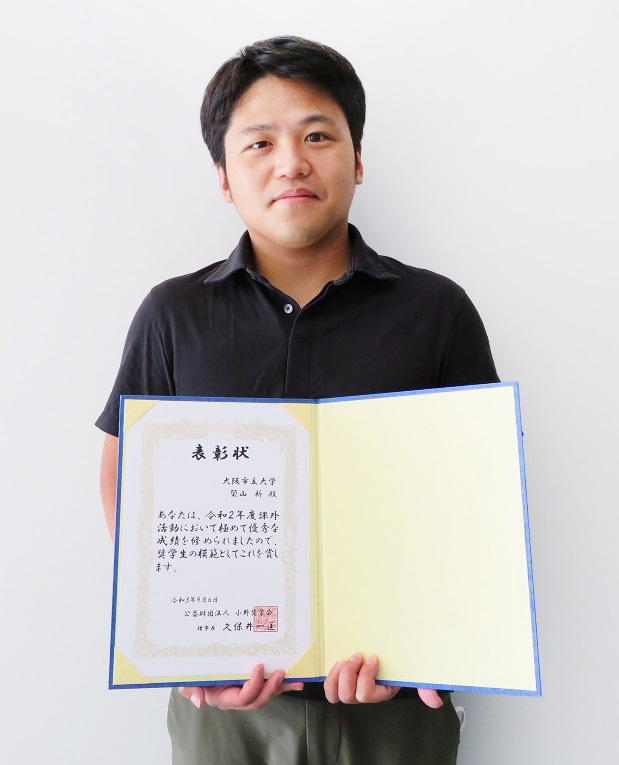 表彰状
大阪市立大学
梁山 新 殿
あなたは、令和2年度課外
活動において極めて優秀な
成績を修められましたので、
奨学生の模範としてこれを賞し
ます。
令和3年9月6日
公益財団法人 小野奨学会
理事長 久保井一匡